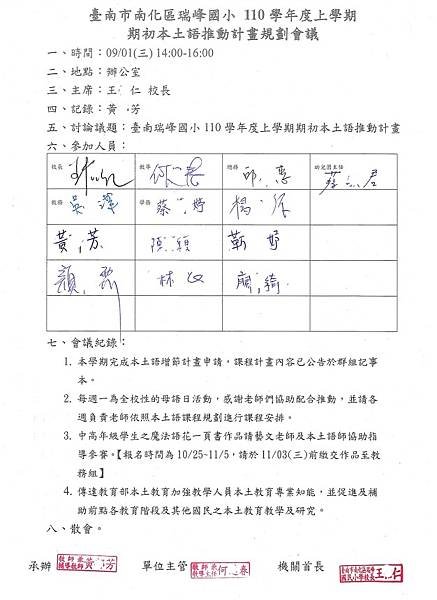 臺南市南化區瑞峰國小 110 學年度上學期
期初本土語推動計畫規劃會議
一、時間：09/01(三) 14:00-16:00
二、地點：辦公室
三、主席：王 仁 校長
四、記錄：黃 芳
五、討論議題：臺南瑞峰國小110學年度上學期期初本土語推動計畫
六、參加人員：
校長 教導 何 春 總務 邱 惠 幼兒園主任 蔡 君
教務 吳 澤 學務 蔡 婷 楊
黃 芳 穎 靳 婷
顏 林 廖 綺
七、會議紀錄：
1. 本學期完成本土語增節計畫申請，課程計畫內容已公告於群組記事
本。
2. 每週一為全校性的母語日活動，感謝老師們協助配合推動，並請各
週負責老師依照本土語課程規劃進行課程安排。
3. 中高年級學生之魔法語花一頁書作品請藝文老師及本土語師協助指
導參賽。【報名時間為 10/25~11/5，請於 11/03(三)前繳交作品至教
務組】
4. 傳達教育部本土教育加強教學人員本土教育專業知能，並促進及補
助前點各教育階段及其他國民之本土教育教學及研究。
八、散會。
承辦 教師兼輔導教師 黃 芳 單位主管 教師兼教導主任 何 春 機關首長 臺南市南化區瑞峰國民小學校長 王 仁